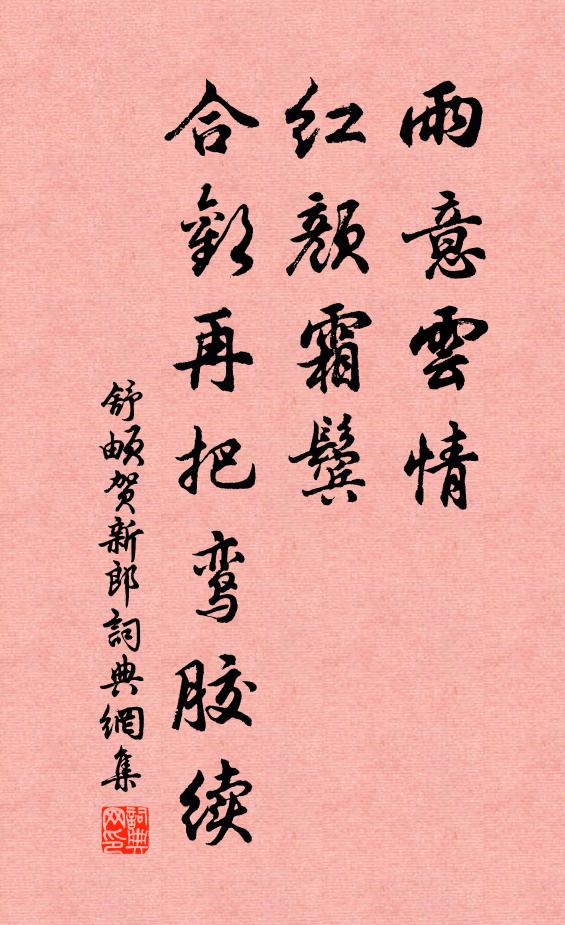 雨意雲情
红颜霜鬓
合歡再把鸾胶续
舒頔贺新郎詞典網集
詞典网印